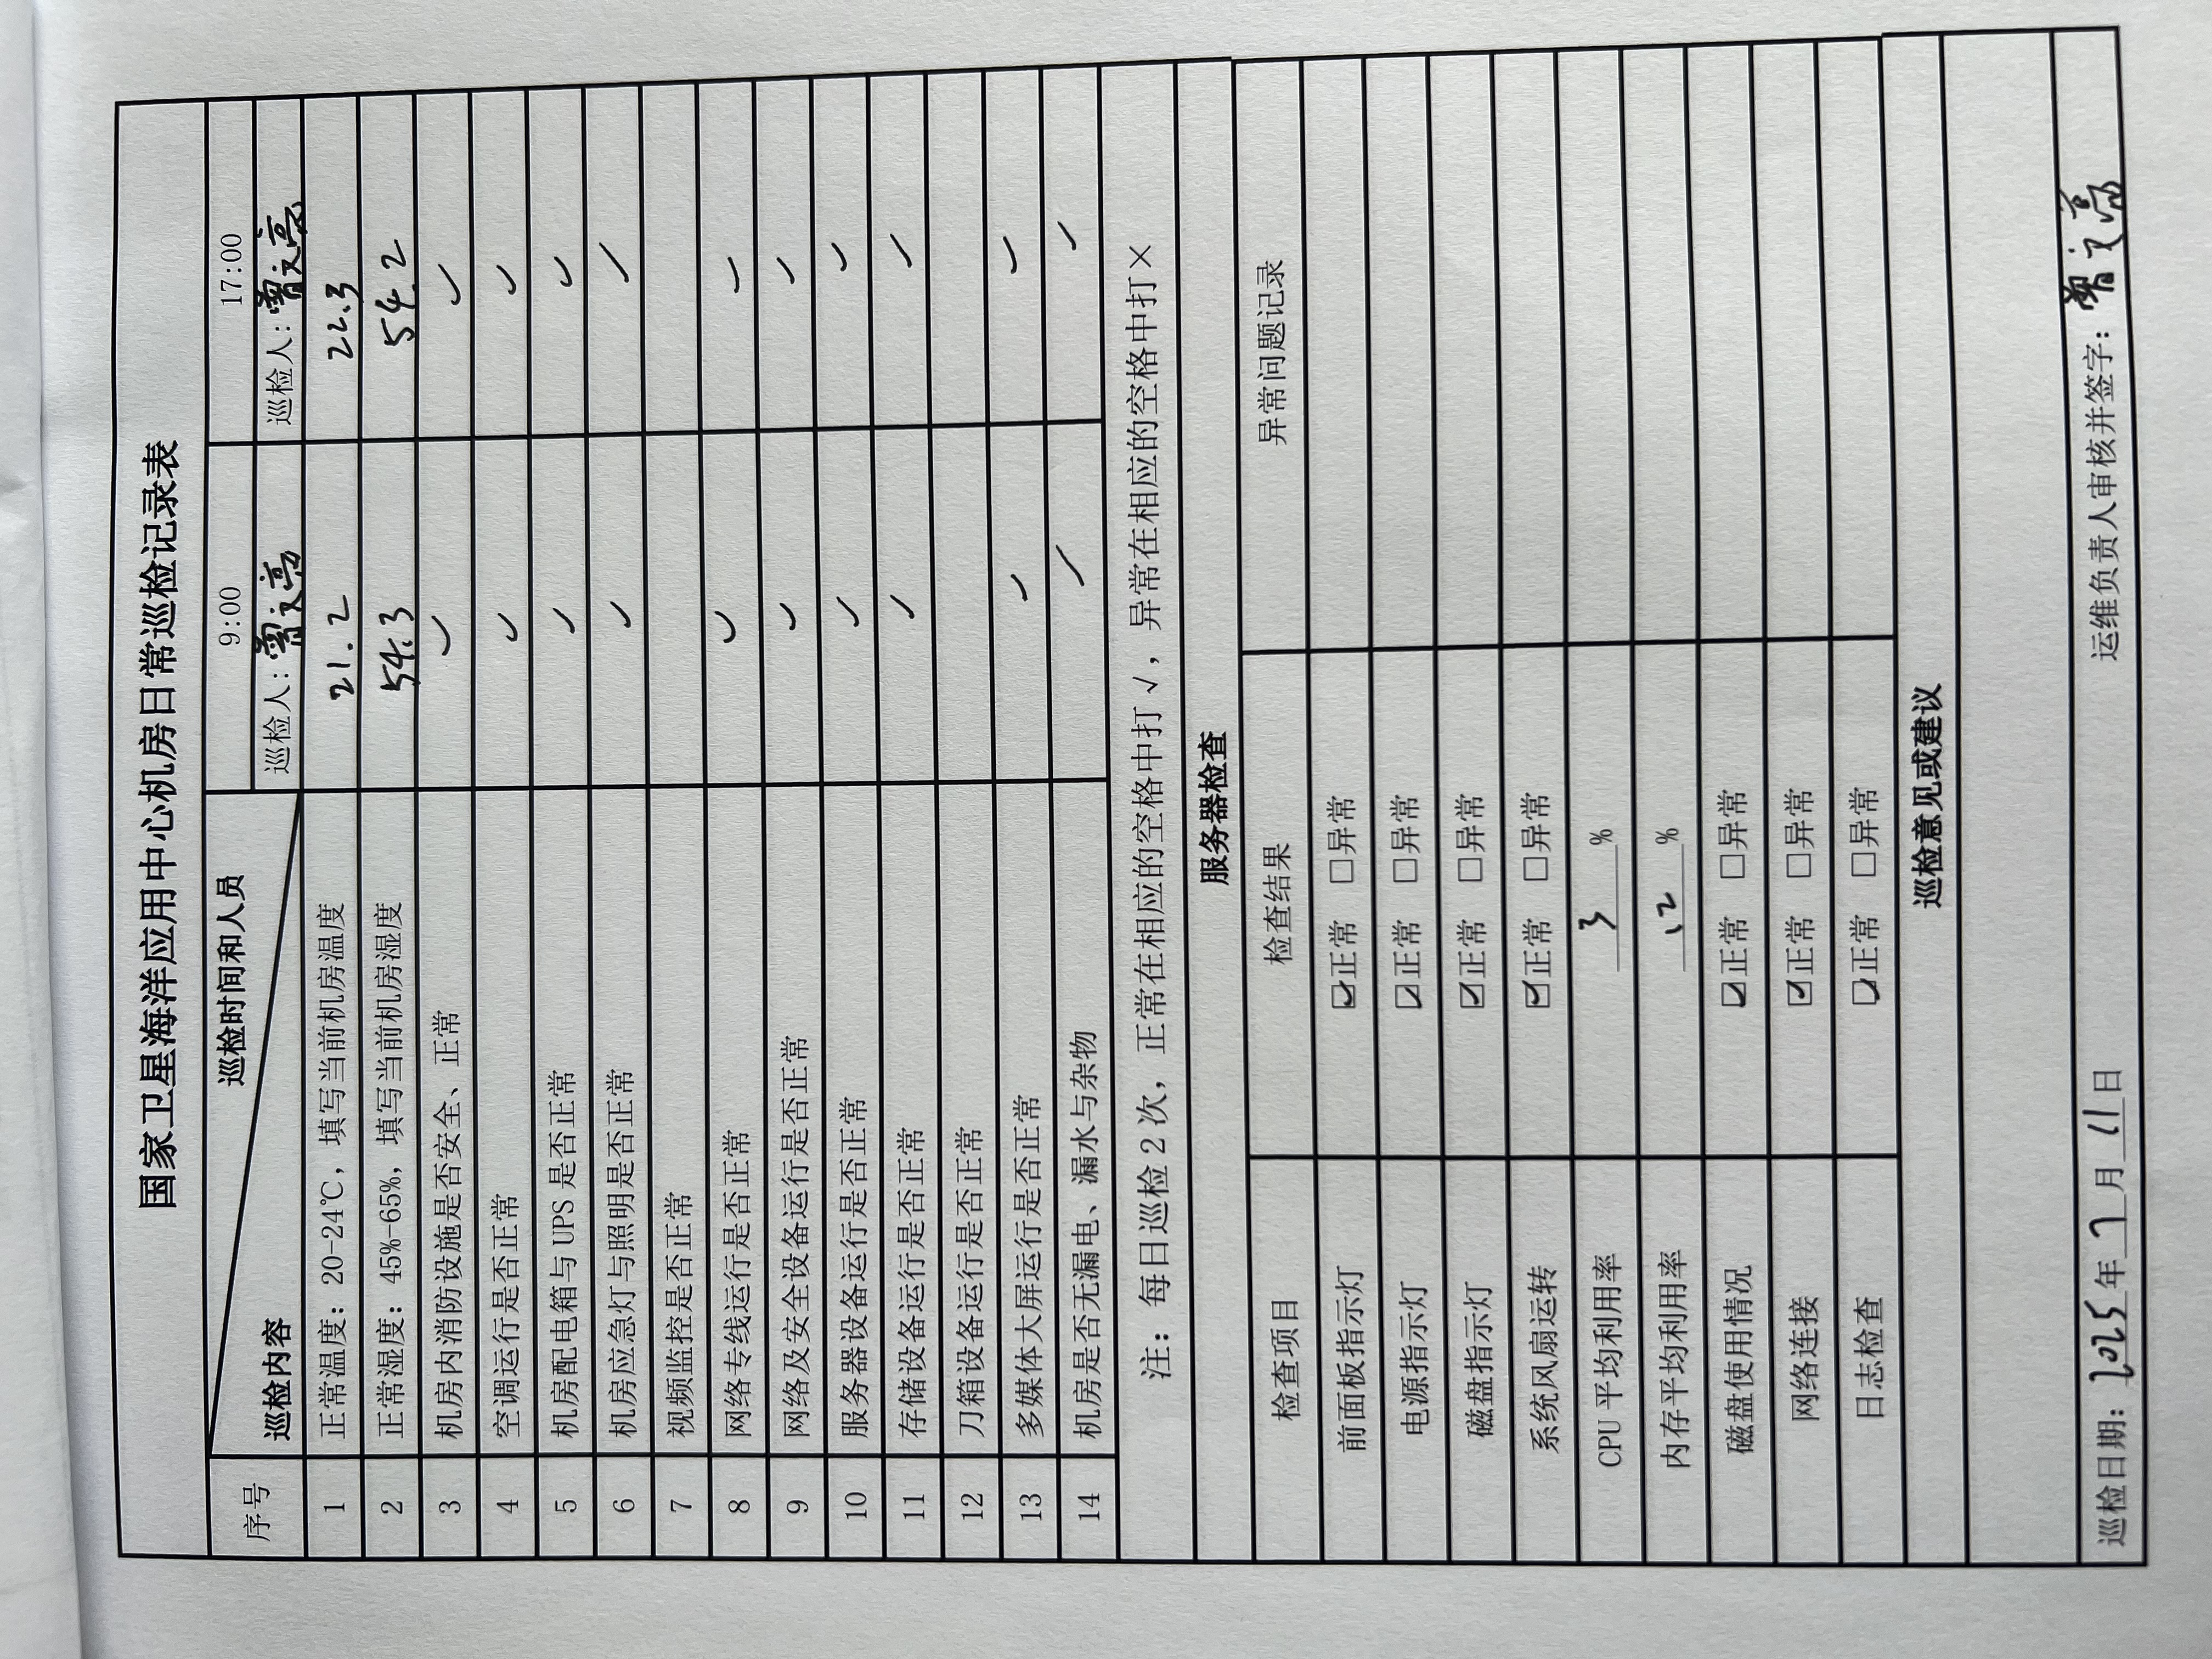 国家卫星海洋应用中心机房日常巡检记录表
序号 巡检内容 巡检时间和人员 9:00 17:00
巡检人：曾文亮 巡检人：曾文亮
1 正常温度：20-24℃，填写当前机房温度 21.2 22.3
2 正常湿度：45%-65%，填写当前机房湿度 54.3 54.2
3 机房内消防设施是否安全、正常 ✓ ✓
4 空调运行是否正常 ✓ ✓
5 机房配电箱与 UPS 是否正常 ✓ ✓
6 机房应急灯与照明是否正常 ✓ ✓
7 视频监控是否正常
8 网络专线运行是否正常 ✓ ✓
9 网络及安全设备运行是否正常 ✓ ✓
10 服务器设备运行是否正常 ✓ ✓
11 存储设备运行是否正常 ✓ ✓
12 刀箱设备运行是否正常
13 多媒体大屏运行是否正常 ✓ ✓
14 机房是否无漏电、漏水与杂物 ✓ ✓
注：每日巡检 2 次，正常在相应的空格中打√，异常在相应的空格中打×
服务器检查
检查项目 检查结果 异常问题记录
前面板指示灯 ☑正常 □异常
电源指示灯 ☑正常 □异常
磁盘指示灯 ☑正常 □异常
系统风扇运转 ☑正常 □异常
CPU 平均利用率 3 %
内存平均利用率 12 %
磁盘使用情况 ☑正常 □异常
网络连接 ☑正常 □异常
日志检查 ☑正常 □异常
巡检意见或建议
巡检日期：2025年7月11日 运维负责人审核并签字：曾文亮